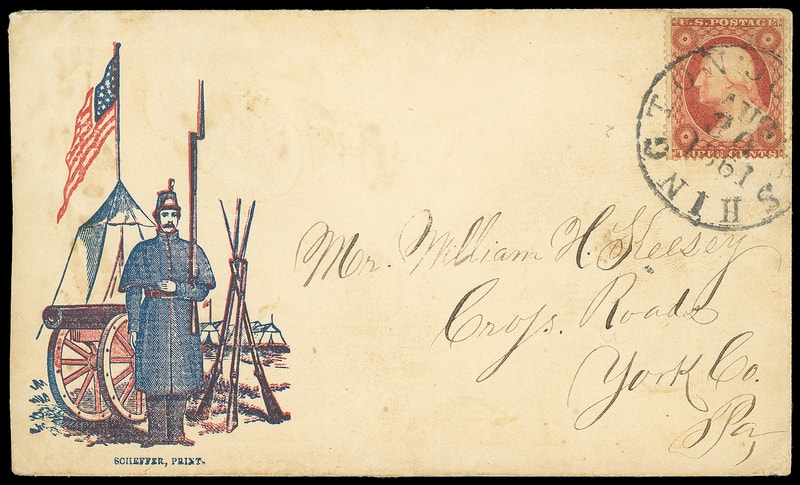 U.S. POSTAGE
THREE CENTS
WASHINGTON
AUG
1861
Mr. William H. Keesey
Cross Roads
York Co.
Pa,
SCHEFFER, PRINT.